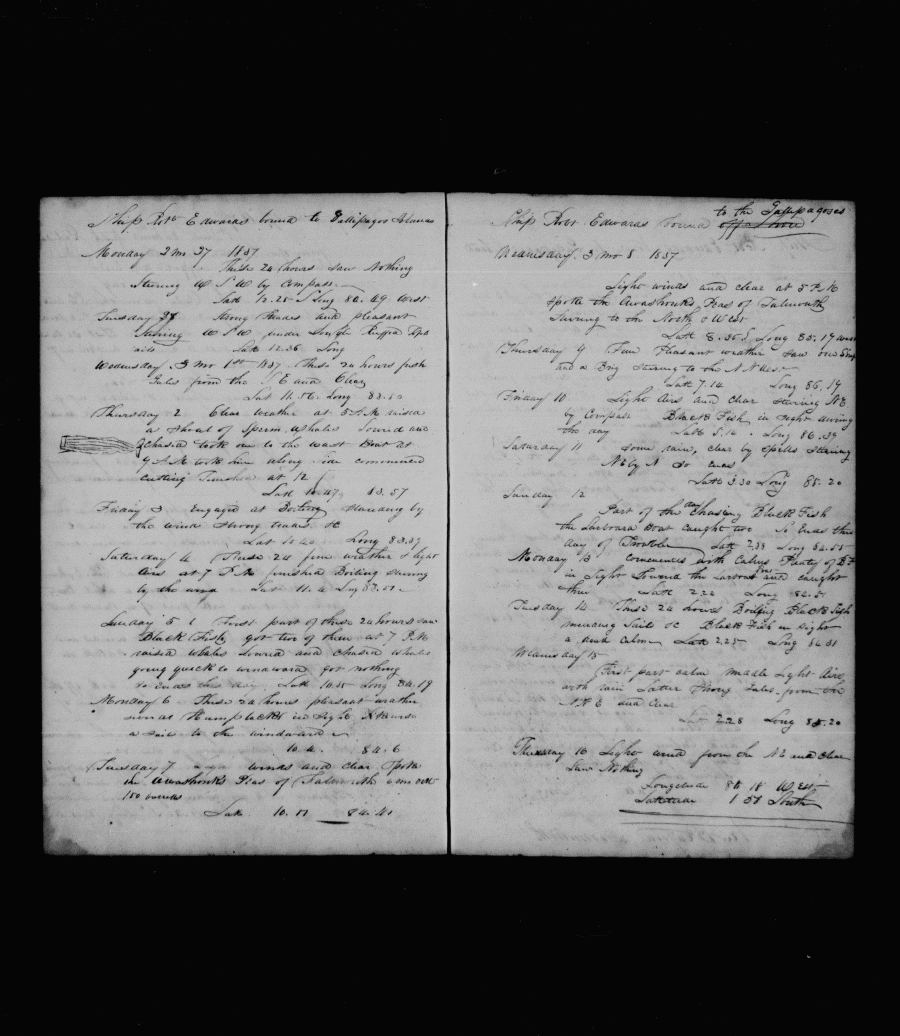 Ship Robt Edwards bound to Gallipagos Islands
Monday 2 mo 27 1837
These 24 hours saw Nothing
Stering W S W by Compass
Latt 12.25 S Long 80.49 West
Tuesday 28 Strong Trades and pleasant
Stering W S W under Single Reffed Top
sails Latt 12.36 Long
Wednesday 3 mo 1st 1837 These 24 hours fresh
Gales from the S E and Clear
Latt 11.56 Long 83.
Thursday 2 Clear weather at 5 A M raised
a Shoal of Sperm Whales lowerd and
chased took one to the wast Boat at
9 A M took him along side commenced
cutting finished at 12
Latt 83.57
Friday 3 Engaged at Boiling Standing by
the wind strong trades &c
Long 83.
Saturday 4 These 24 fine weather & light
Airs at 7 P M finished Boiling Stering
by the wind Latt 11. Long
Sunday 5 First part of these 24 hours saw
Black Fish got two of them at 7 P M
raised whales lowerd and chased whales
going quick to windward got nothing
so ends this day Latt 10. Long 84.19
Monday 6 These 24 hours pleasant weather
Humpbacks in sight
a sail to the windward
10.4. 84.6
Tuesday 7 winds and clear Spoke
the Awashonks Peas of Falmouth 6 mo out
150 barrels
Latt 10. 84.41
Ship Robt Edwards bound to the Gallipagoses
Wednesday 3 mo 8 1837
Light winds and clear at 5 P M
Spoke the Awashonks Peas of Falmouth
Stering to the North & West
Latt 8.56 S Long 85.19 west
Thursday 9 Fine Pleasant weather saw one Ship
and a Brig stering to the N N
Latt 7.14 Long 86.19
Friday 10 Light Airs and clear stering N E
by Compass Black Fish in sight during
the day Latt 5.14 Long 86.39
Saturday 11 some rain, clear by spells stering
N E by N So ends
Latt 3.30 Long 85.20
Sunday 12
Part of the day Chasing Black Fish
the Larboard Boat caught two So Ends this
day of Trouble Latt 2.39 Long 84.51
Monday 13 Commences with Calms Plenty of B F
in Sight Lowerd the larboard and caught
three Latt 2.22 Long 82.51
Tuesday 14 These 24 hours Boiling Black Fish
mending Sails &c Black Fish in sight
a dead Calm Latt 2.25 Long 84.31
Wednesday 15
First part calm middle Light Airs
with rain Latter Strong Gales from the
N N E and clear
Latt 2.28 Long 85.20
Thursday 16 Light wind from the N E and clear
Saw Nothing
Longitude West
Lattitude 1 51 South